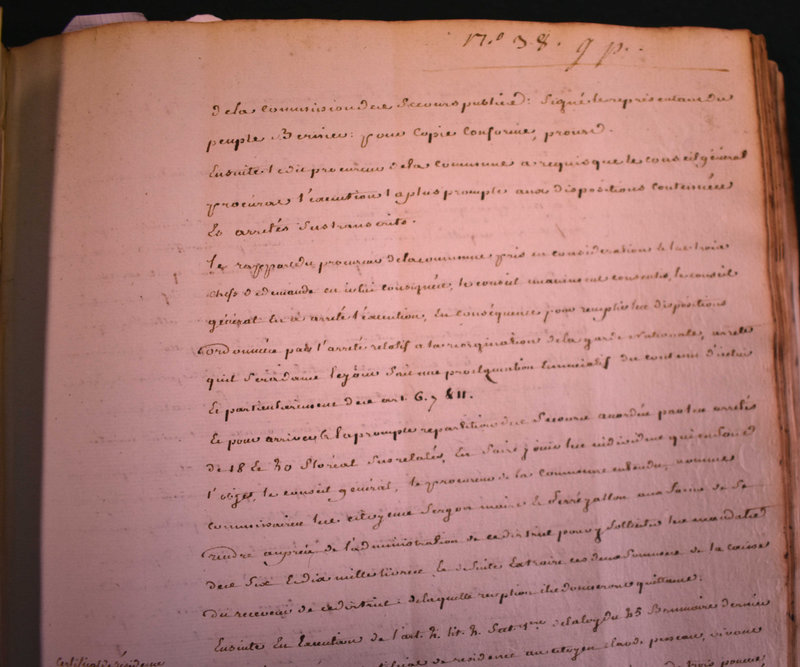 17.° 38. g p.
de la Commission des Secours publics: Signé le représentant du
peuple Bernier: pour Copie Conforme, prouvé.
Ensuite ledit procureur de la commune a requis que le conseil général
procurat l'execution la plus prompte aux dispositions contenues
Es arretés sus transcrits.
Le rapport du procureur de la commune pris en consideration & les trois
chefs de demande en iceluy consignés, le conseil unanimement consentis, le conseil
général En a arreté l'execution, En conséquence pour remplir les dispositions
ordonnées par l'arreté relatif a la reorganisation de la garde Nationale, arrete
quil Sera dans le jour fait une proclamation Enonciatif du contenu d'iceluy
Et particulierement des art. 6. 7 & 11.
Et pour arriver à la prompte repartition des Secours accordés par les arretés
de 18 Et 30 floréal Susrelatés, En faire jouir les individus qui en font
l'objet, le conseil général, le procureur de la Commune entendu, nomme
Commissaires les citoyens Sergon maire & aux fins de Se
rendre auprès de l'administration de ce district pour y Solliciter les mandats
des Six Et dix mille livres, & de Suite Extraire ces deux Sommes de la caisse
du receveur de ce district de laquelle reception ils donneront quittance.
Ensuite En Execution de l'art. 2. tit. 2. de la loy du 25 Brumaire dernier
Certificat de résidence
de residence au citoyen Claude vivant